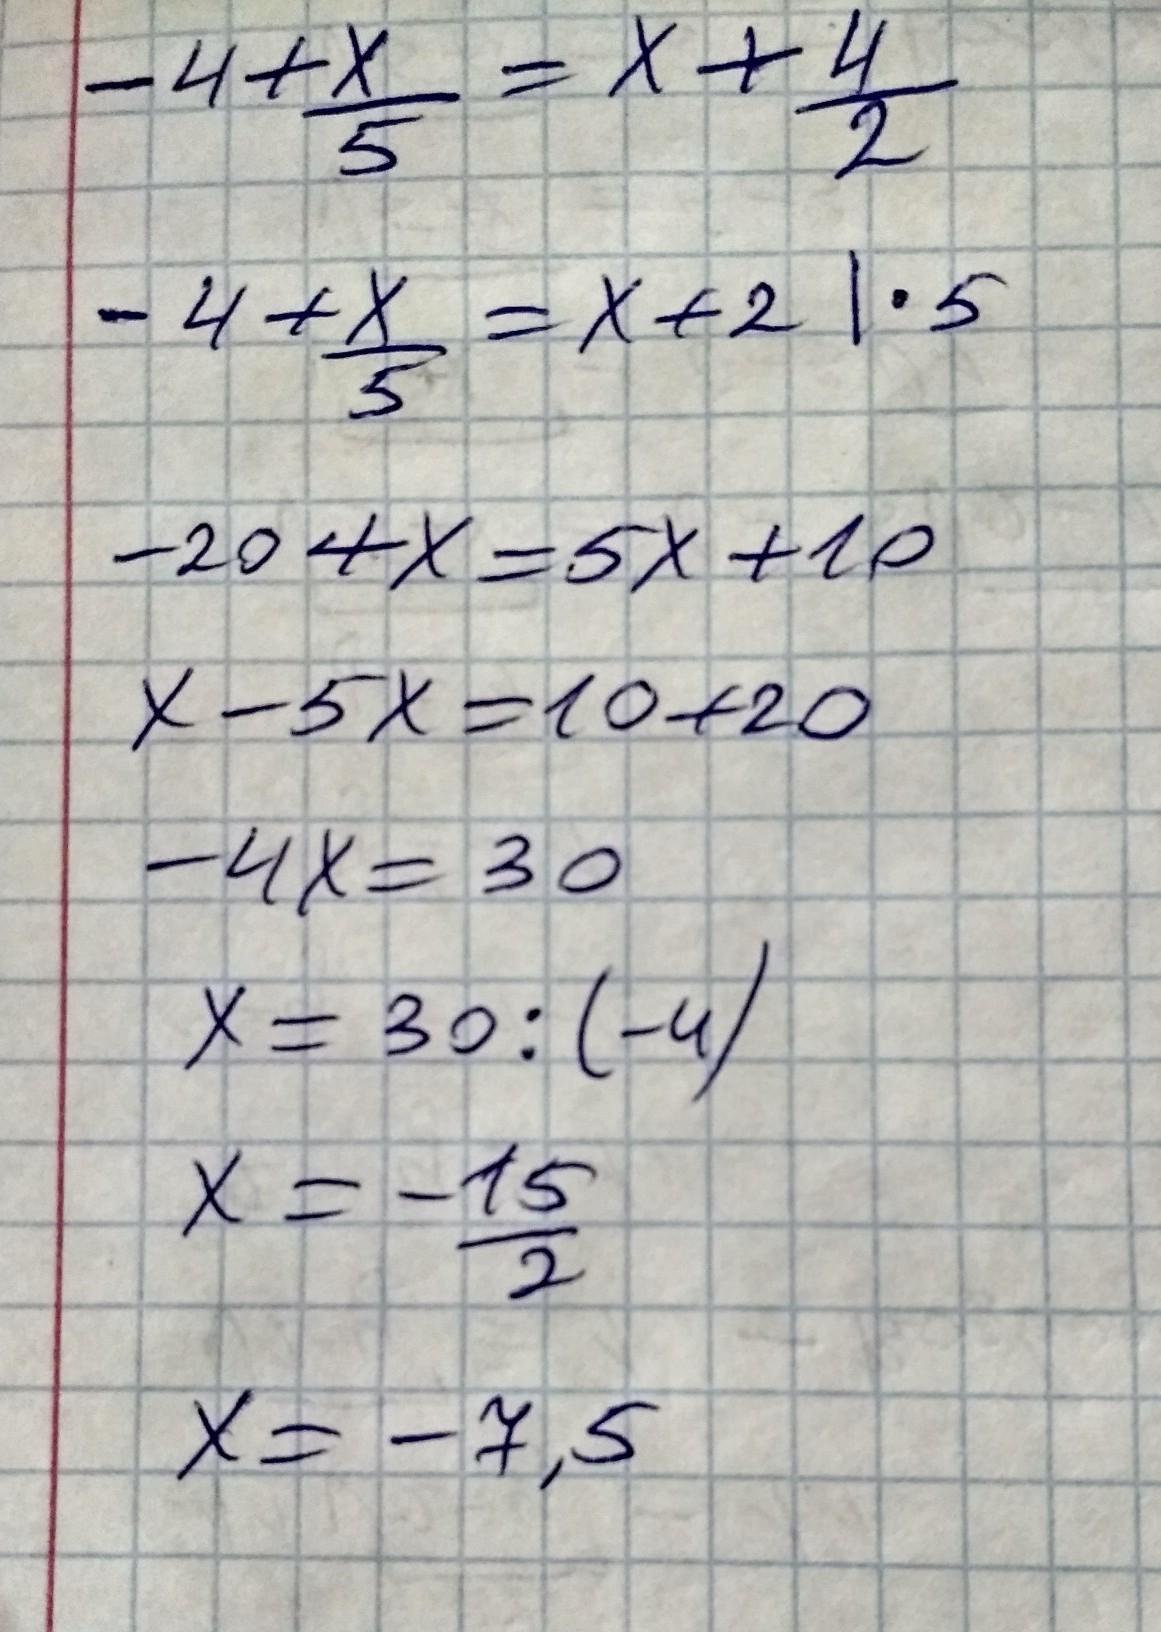 -4 + x/5 = x + 4/2
-4 + x/5 = x + 2 | · 5
-20 + x = 5x + 10
x - 5x = 10 + 20
-4x = 30
x = 30 : (-4)
x = -15/2
x = -7,5